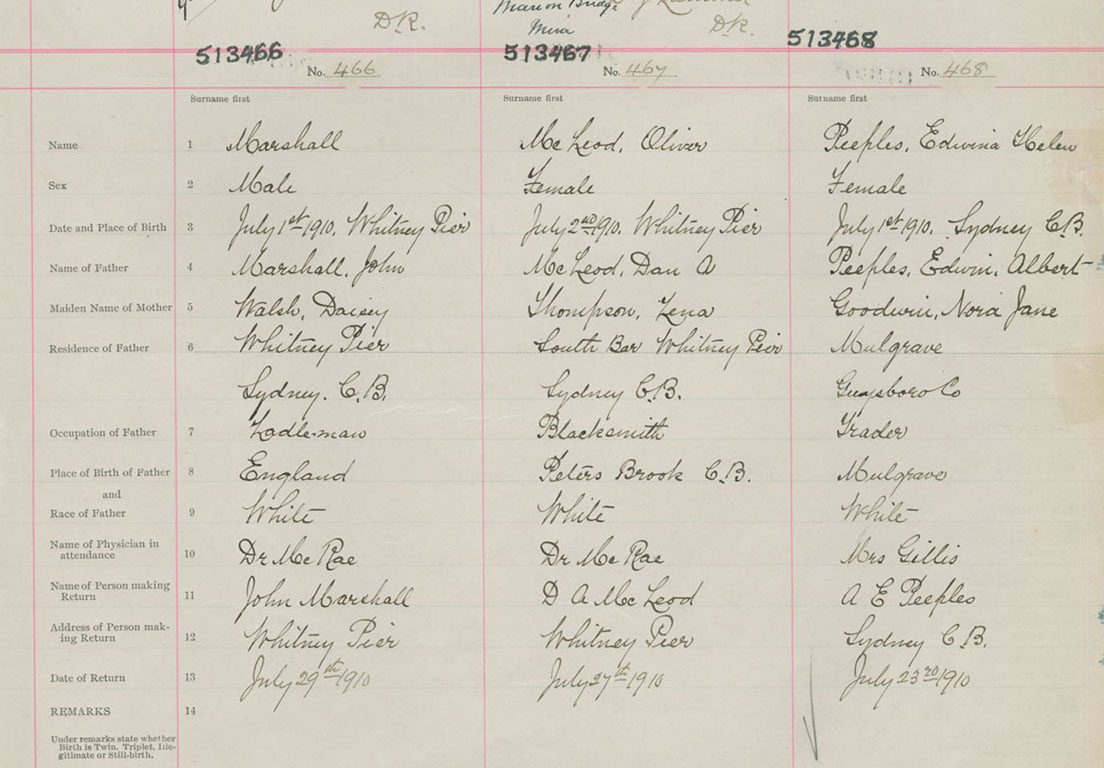 D.R. Marion Bridge D.R.
Mira
513466 513467 513468
No. 466 No. 467 No. 468
Surname first Surname first Surname first
Name 1 Marshall McLeod, Oliver Peeples, Edwina Helen
Sex 2 Male Female Female
Date and Place of Birth 3 July 1st 1910. Whitney Pier July 2nd 1910. Whitney Pier July 1st 1910. Sydney C.B.
Name of Father 4 Marshall, John McLeod, Dan A Peeples, Edwin, Albert
Maiden Name of Mother 5 Walsh, Daisey Thompson, Lena Goodwin, Nora Jane
Residence of Father 6 Whitney Pier South Bar Whitney Pier Mulgrave
Sydney. C.B. Sydney C.B. Guysboro Co
Occupation of Father 7 Ladle-man Blacksmith Trader
Place of Birth of Father 8 England Peters Brook C.B. Mulgrave
and
Race of Father 9 White White White
Name of Physician in
attendance 10 Dr McRae Dr McRae Mrs Gillis
Name of Person making
Return 11 John Marshall D A McLeod A E Peeples
Address of Person mak-
ing Return 12 Whitney Pier Whitney Pier Sydney C.B.
Date of Return 13 July 29th 1910 July 27th 1910 July 23rd 1910
REMARKS 14
Under remarks state whether
Birth is Twin, Triplet, Ille-
gitimate or Still-birth.